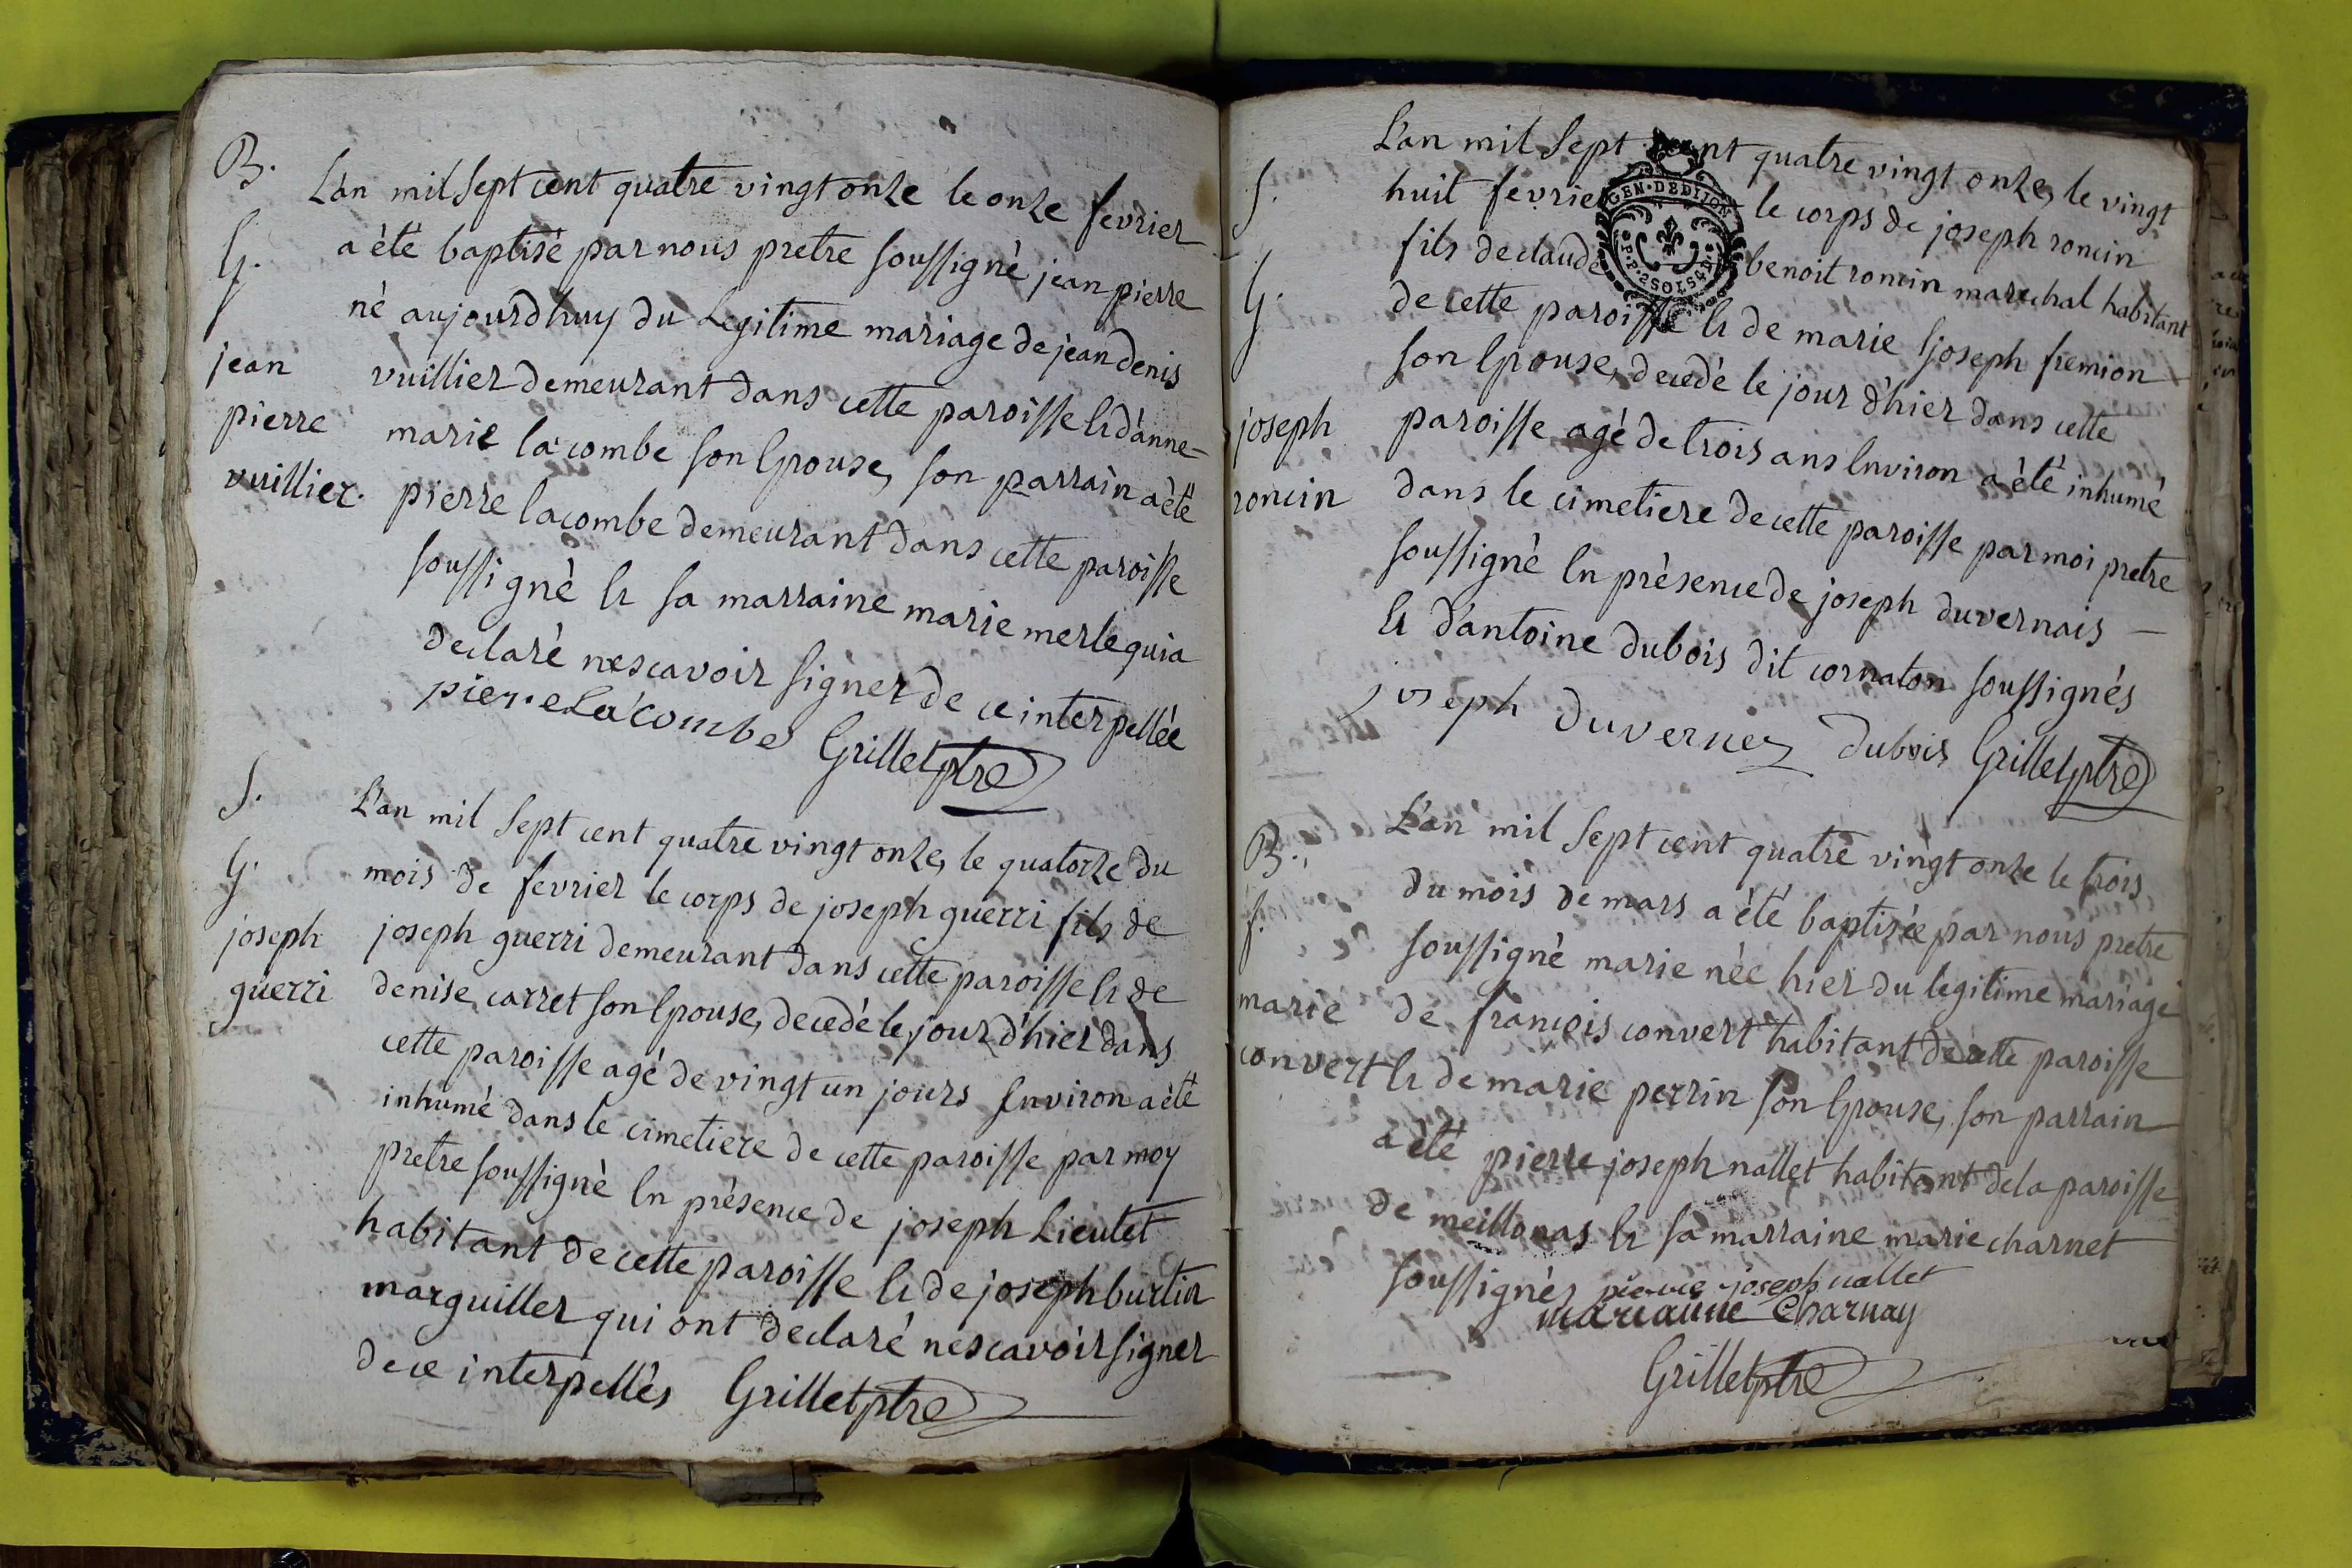 B.
G.
jean
pierre
vuillier.
L'an mil sept cent quatre vingt onze le onze fevrier
a èté baptisé par nous pretre soussigné jean pierre
né aujourdhuy du Legitime mariage de jean denis
vuillier demeurant dans cette paroisse et d'anne-
marie la combe son epouse, son parrain a èté
pierre lacombe demeurant dans cette paroisse
soussigné et sa marraine marie merle qui a
declaré nescavoir signer de ce interpellée
pierre Lacombe Grillet ptre
S.
G.
joseph
guerri
L'an mil sept cent quatre vingt onze, le quatorze du
mois de fevrier le corps de joseph guerri fils de
joseph guerri demeurant dans cette paroisse et de
denise carret son epouse, decedé le jour d'hier dans
cette paroisse agé de vingt un jours environ a èté
inhumé dans le cimetiere de cette paroisse par moy
pretre soussigné en présence de joseph Lieutet
habitant de cette paroisse et de joseph burtin
marguiller qui ont declaré nescavoir signer
de ce interpellés Grillet ptre
S.
G.
joseph
roncin
L'an mil sept cent quatre vingt onze, le vingt
huit fevrier le corps de joseph roncin
fils de claude benoit roncin marechal habitant
de cette paroisse et de marie joseph fremion
son epouse, decedé le jour d'hier dans cette
paroisse agé de trois ans environ a èté inhumé
dans le cimetiere de cette paroisse par moi pretre
soussigné en présence de joseph duvernais —
et d'antoine dubois dit cornaton soussignés
joseph duverney dubois Grillet ptre
GEN·DEDIJON
P·P·2SOLS4D
B.
f.
marie
convert
L'an mil sept cent quatre vingt onze le trois
du mois de mars a èté baptisée par nous pretre
soussigné marie née hier du legitime mariage
de francois convert habitant de cette paroisse
et de marie perrin son epouse, son parrain
a èté pierre joseph nallet habitant de la paroisse
de meillonas et sa marraine marie charnet
soussignés pierre joseph nallet
marianne Charnay
Grillet ptre